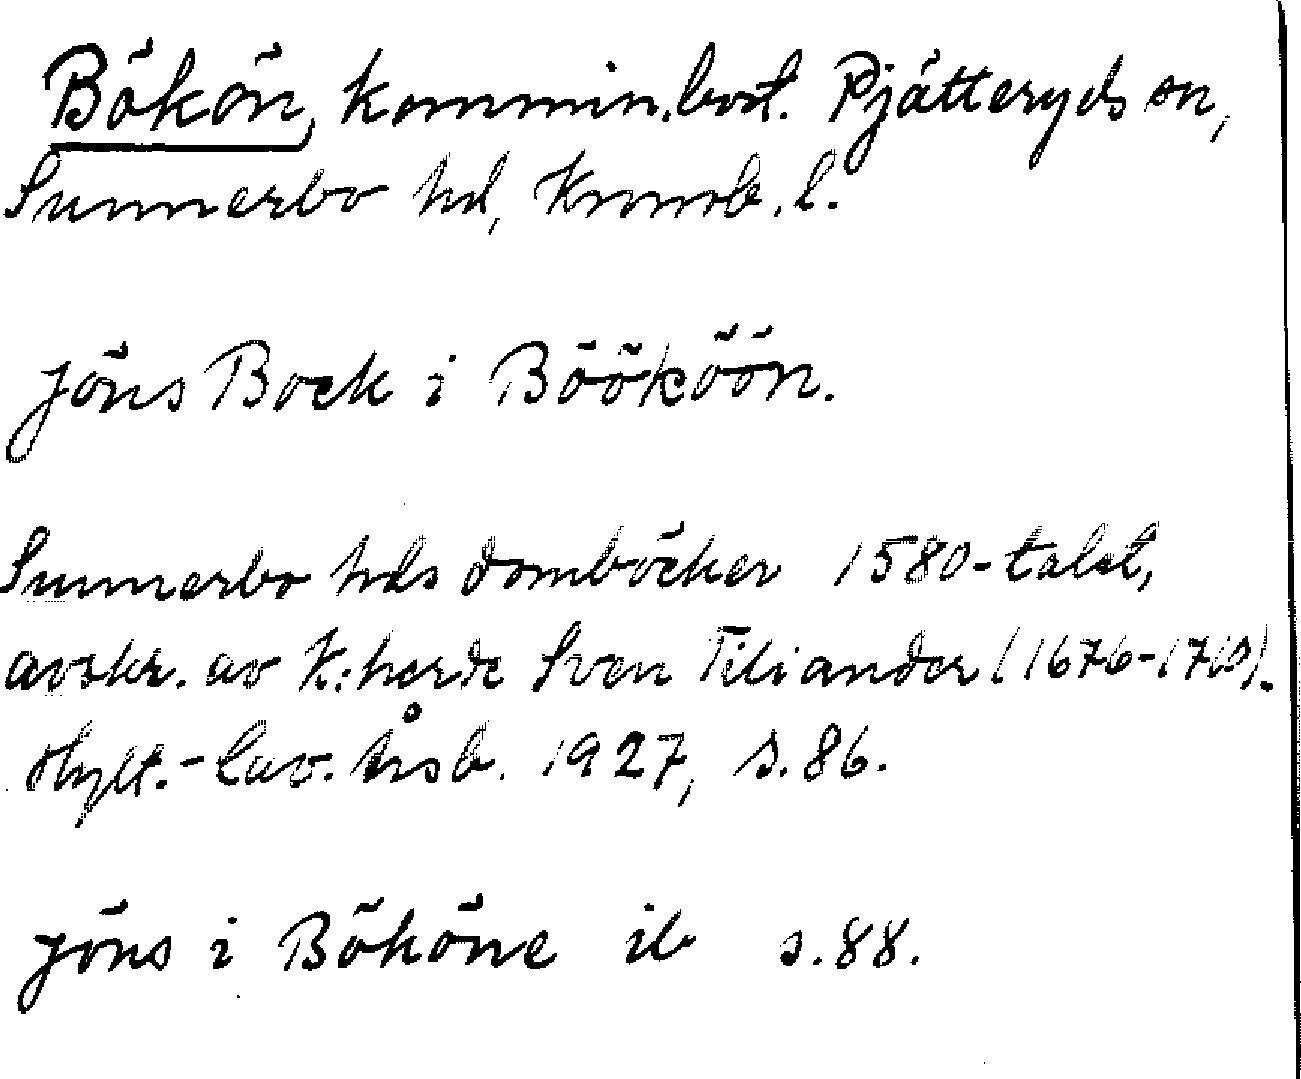 Bökön, kommin.bost. Pjätteryds sn,
Sunnerbo hd, Kronob. l.
Jöns Bock i Böököön.
Sunnerbo hds domböcker 1580-talet,
avskr. av K:herde Sven Tiliander (1676-1710).
Hylt.-Cav. Årsb. 1927, s. 86.
Jöns i Bököne ib s. 88.